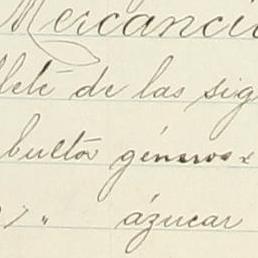 Mercancí
lleté de las sig
bultos géneros
% " ázucar